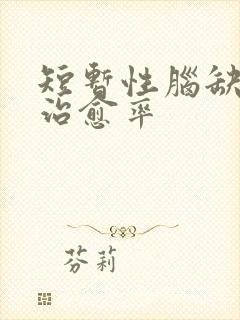 短暫性腦缺
治愈率
芬莉